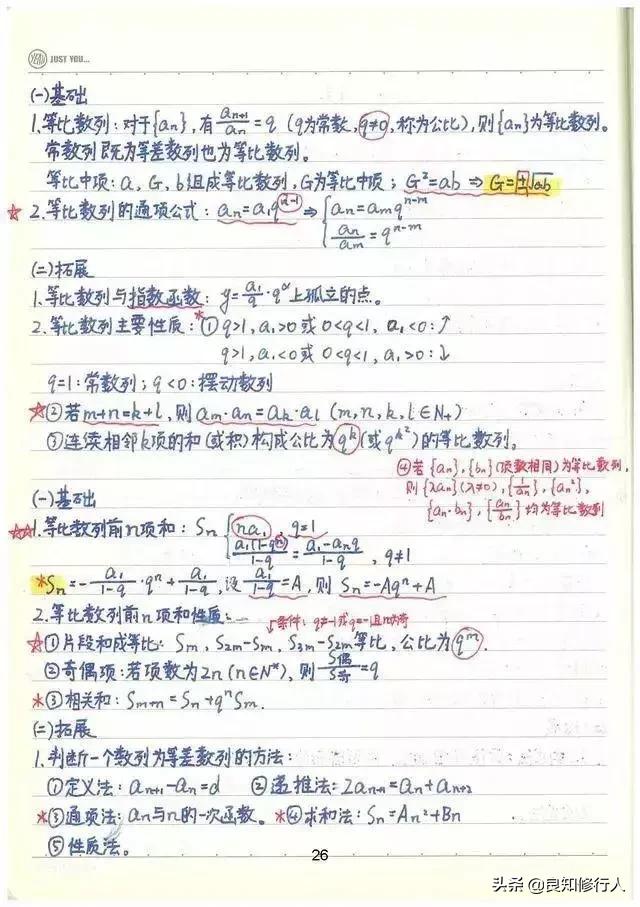 JUST YOU...
(一)基础
1.等比数列：对于{an}，有an+1/an=q（q为常数，q≠0，称为公比），则{an}为等比数列。
常数列即既为等差数列也为等比数列。
等比中项：a，G，b组成等比数列，G为等比中项；G²=ab ⇒ G=±√ab
☆2.等比数列的通项公式：an=a1q^(n-1) ⇒ { an=amq^(n-m)
an/am=q^(n-m)
(二)拓展
1.等比数列与指数函数：y=a1/q·q^x上孤立的点。
2.等比数列主要性质：*①q>1，a1>0或0<q<1，a1<0：↑
q>1，a1<0或0<q<1，a1>0：↓
q=1：常数列；q<0：摆动数列
☆②若m+n=k+l，则am·an=ak·al（m,n,k,l∈N+）
③连续相邻k项的和(或积)构成公比为q^k(或q^(k²))的等比数列。
④若{an},{bn}(项数相同)为等比数列，
则{λan}(λ≠0),{1/an},{an²},
{an·bn},{an/bn}均为等比数列
(一)基础
☆☆1.等比数列前n项和：Sn { na1，q=1
a1(1-q^n)/1-q=a1-anq/1-q，q≠1
*Sn=-a1/1-q·q^n+a1/1-q，设a1/1-q=A，则Sn=-Aq^n+A
2.等比数列前n项和性质：
条件：q≠-1或q=-1且m为奇
☆①片段和成等比：Sm，S2m-Sm，S3m-S2m等比，公比为q^m.
②奇偶项：若项数为2n(n∈N*)，则S偶/S奇=q
*③相关和：Sm+n=Sn+q^nSm.
(二)拓展
1.判断一个数列为等差数列的方法：
①定义法：an+1-an=d ②递推法：2an+1=an+an+2
*③通项法：an与n的一次函数。*④求和法：Sn=An²+Bn
⑤性质法。
26
头条@良知修行人